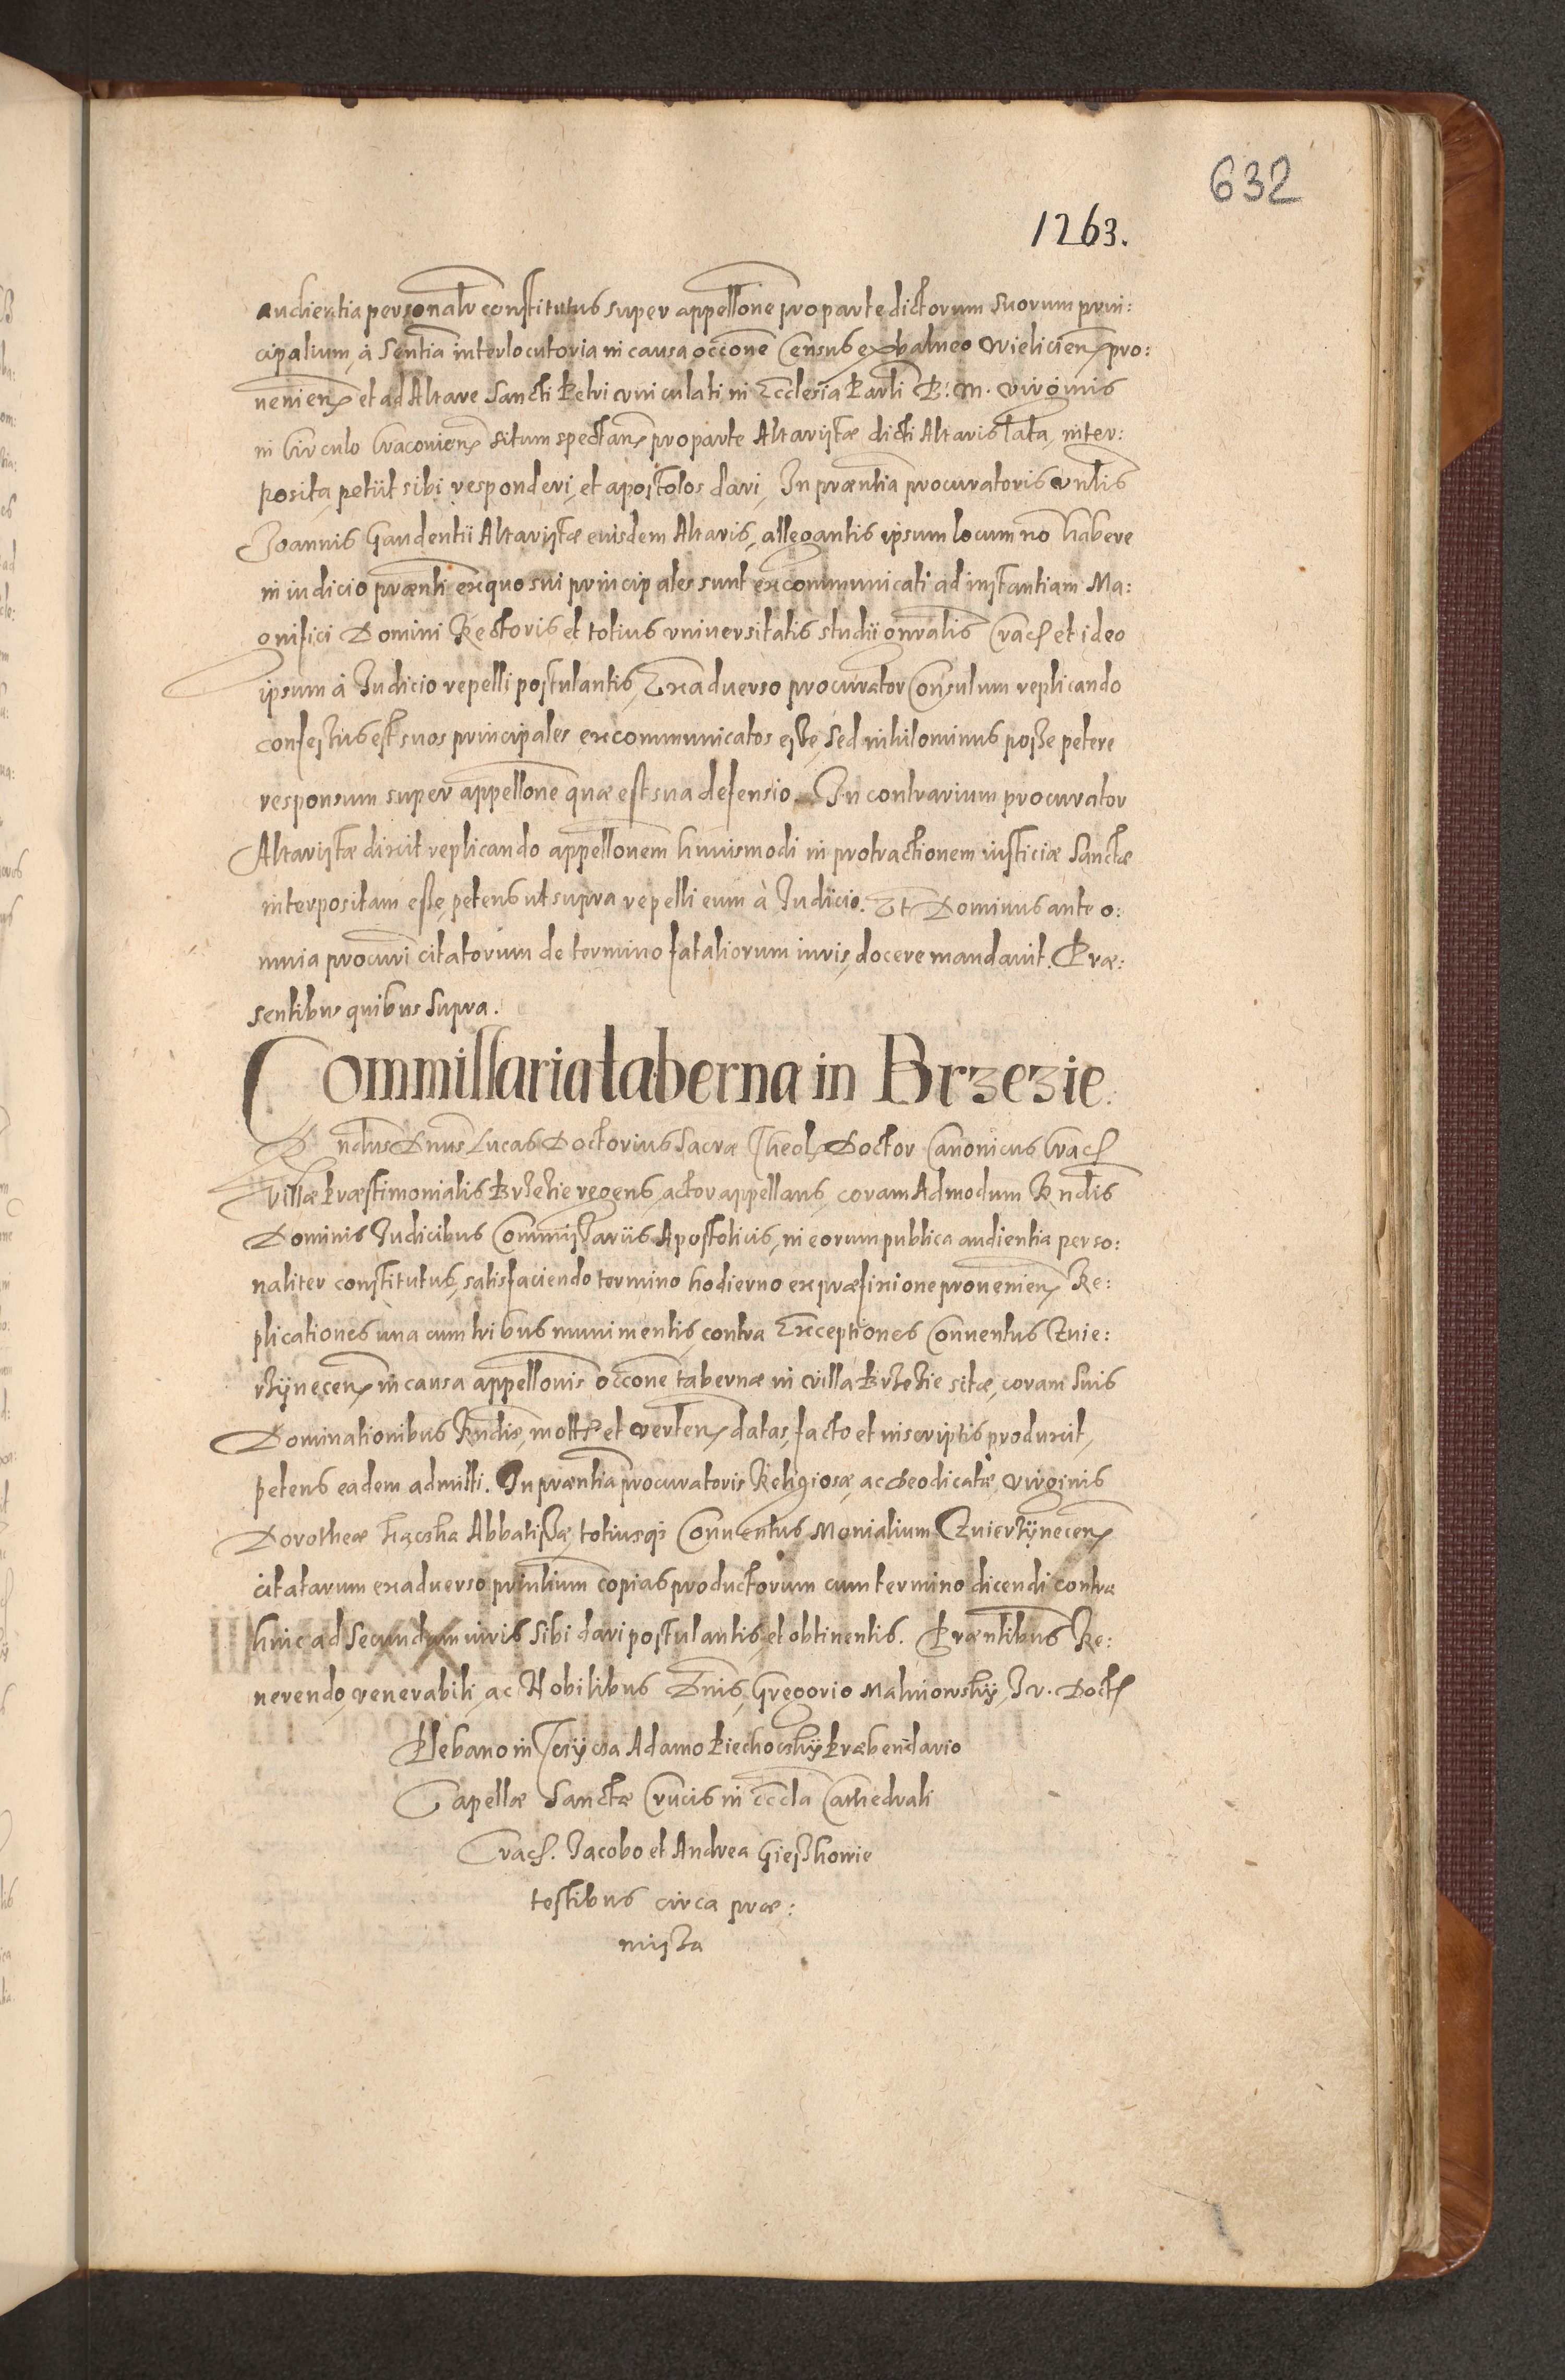 632
1263.
audientia personalr constitutus super appellone pro parte dictorum suorum prin:
cipalium, à Sentia interlocutoria in causa occone Census ex balneo Wielicien pro:
uenien et ad Altare Sancti Petri vinculati in Ecclesia Parli B. M. Virginis
in Circulo Cracouien situm spectan pro parte Altaristæ dicti Altaris lata, inter:
posita, petiit sibi responderi, et apostolos dari, In præntia procuratoris vnlis
Joannis Gaudentii Altaristæ eiusdem Altaris, allegantis ipsum locum no habere
in iudicio prænti exquo sui principales sunt excommunicati ad instantiam Ma:
gnifici Domini Rectoris et totius vniuersitatis studii gnralis Crac et ideo
ipsum à Judicio repelli postulantis, Ex aduerso procurator Consulum replicando
confessus est suos principales excommunicatos esse, Sed nihilominus posse petere
responsum super appellone quæ est sua defensio. In contrarium procurator
Altaristæ dixit replicando appellonem huiusmodi in protractionem iusticiæ Sanctæ
interpositam esse, petens ut supra repelli eum à Judicio. Et Dominus ante o:
mnia procuri citatorum de termino fataliorum iuris, docere mandauit. Præ:
sentibus quibus Supra.
Commissaria taberna in Brzezie.
Rndus Dnus Lucas Doctorius Sacræ Theol Doctor Canonicus Crac
Villæ Præstimonialis Brzezie regens, actor appellans, coram Admodum Rndis
Dominis Judicibus Commissariis Apostolicis, in eorum publica audientia perso:
naliter constitutus, satisfaciendo termino hodierno ex præfinione prouenien Re:
plicationes una cum tribus munimentis, contra Exceptiones Conuentus Zuie:
rzÿnecen in causa appellonis occone tabernæ in villa Brzezie sitæ, coram Suis
Dominationibus Rndis, mott et verten datas, facto et in scriptis produxit,
petens eadem admitti. In præntia procuratoris Religiosæ, ac Deodicatæ Virginis
Dorotheæ Kącska Abbatissæ, totiusq Conuentus Monialium Zuierzÿnecen
citatarum ex aduerso printium copias productorum cum termino dicendi contra
hinc ad Secundam iuris Sibi dari postulantis, et obtinentis. Præntibus Re:
uerendo, venerabili, ac Nobilibus Dnis, Gregorio Maliniowskÿ, I. v. Doct
Plebano in Adamo Piechowskÿ Præbendario
Capellæ Sanctæ Crucis in eccla Cathedrali
Crac. Jacobo et Andrea Gieszkowie
testibus circa præ:
missa